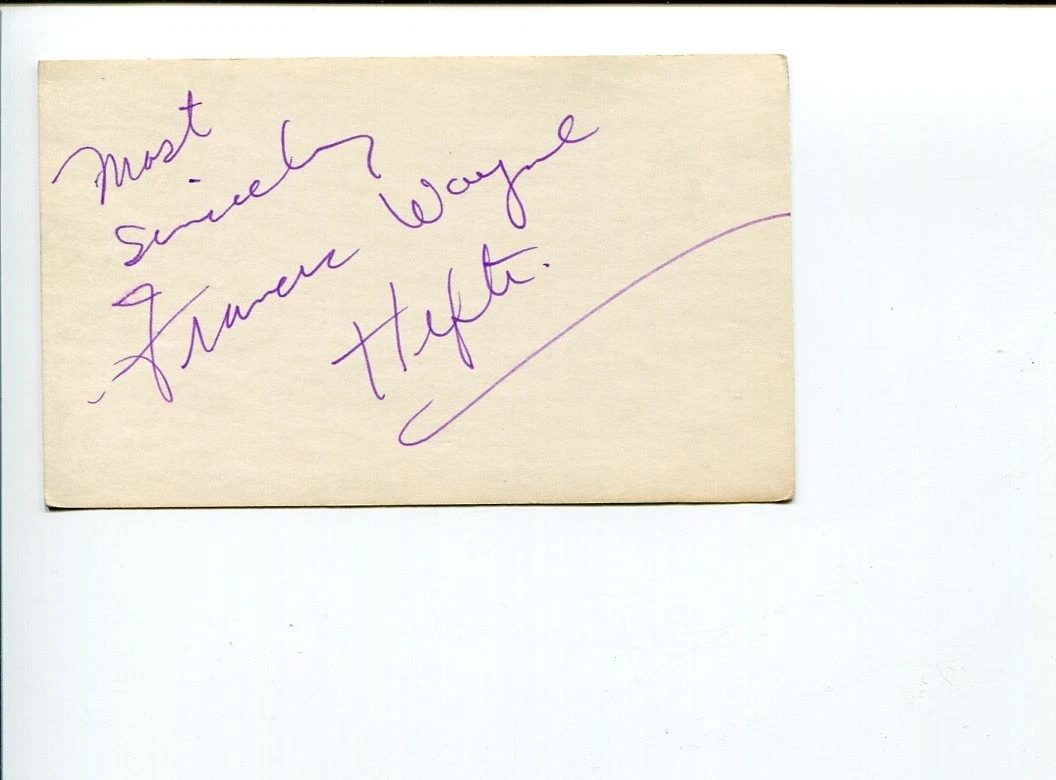 Most
Sincerely
Frances Wayne
Hefti.